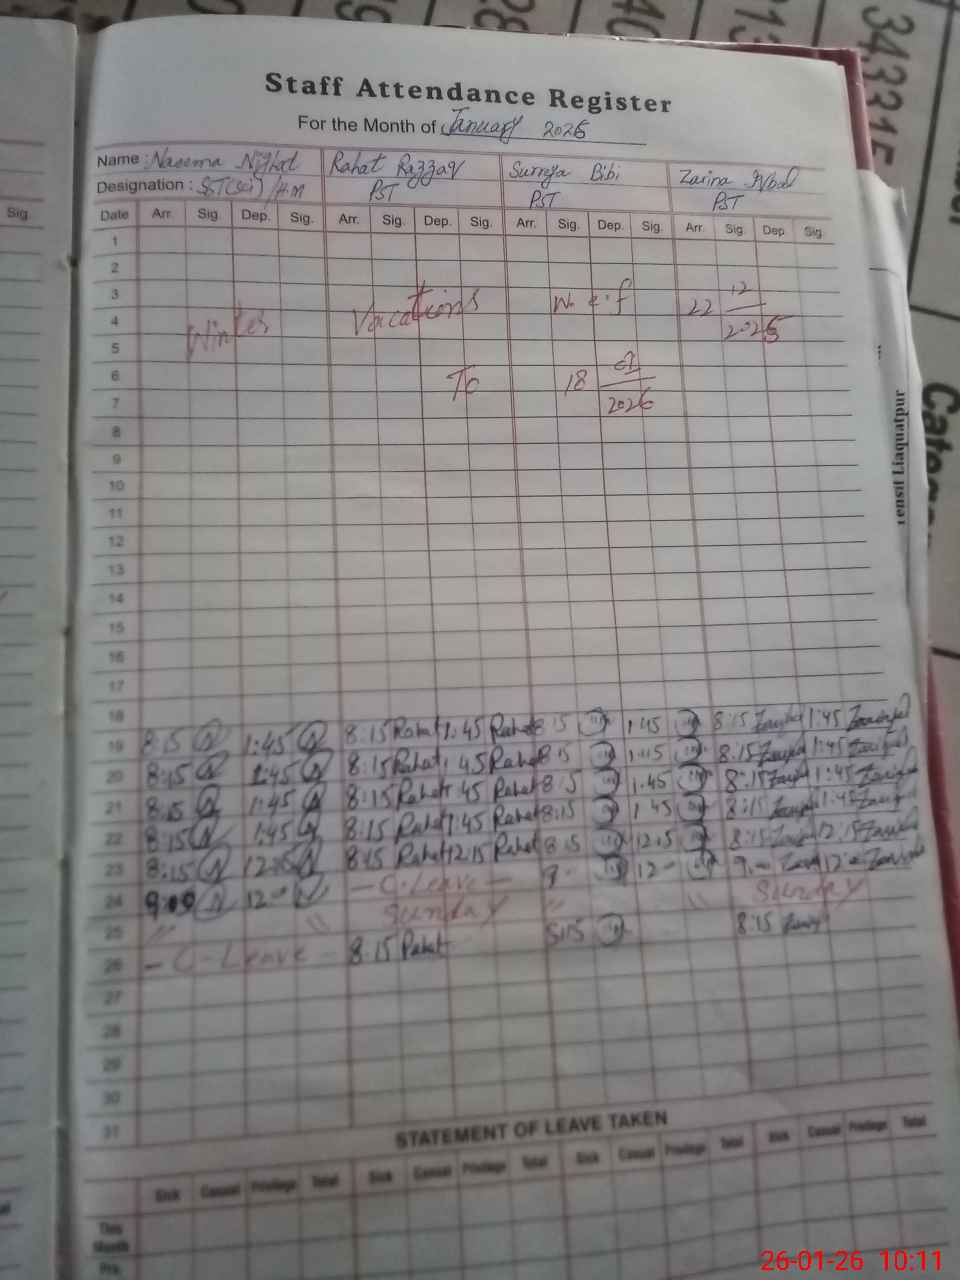 Staff Attendance Register
For the Month of January 2026
Name : Naeema Nighat Rahat Razzaq Surryya Bibi Zarina Iqbal
Designation : SST(sci)/H.M PST PST PST
Date Arr. Sig. Dep. Sig. Arr. Sig. Dep. Sig. Arr. Sig. Dep. Sig. Arr. Sig. Dep. Sig.
1
2
3
4
Winter Vacations W.e.f 22 12 2025
5
6
To 18 01 2026
7
8
9
10
11
12
13
14
15
16
17
18
19 8:15 1:45 8:15 Rahat 1:45 Rahat 8:15 1:45 8:15 1:45
20 8:15 1:45 8:15 Rahat 1:45 Rahat 8:15 1:45 8:15 1:45
21 8:15 1:45 8:15 Rahat 1:45 Rahat 8:15 1.45 8:15 1:45
22 8:15 1:45 8:15 Rahat 1:45 Rahat 8:15 1:45 8:15 1:45
23 8:15 12:15 8:15 Rahat 12:15 Rahat 8:15 12.15 8:15 12:15
24 9:00 12- - C-Leave - 9- 12- 9.- 12-
25 " " Sunday " " Sunday
26 - C-Leave - 8:15 Rahat 8:15
27
28
29
30
31
STATEMENT OF LEAVE TAKEN
Sick Casual Privilege Total Sick Casual Privilege Total Sick Casual Privilege Total Sick Casual Privilege Total
This Month
Pre.
Sig.
Tensil Liaquatpur
343315
26-01-26 10:11